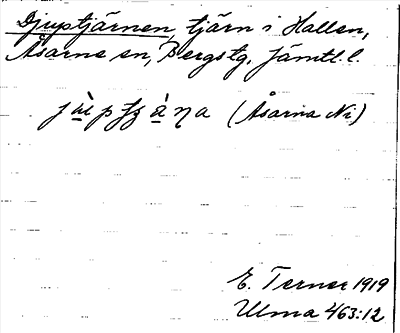 Djuptjärnen, tjärn i Hallen,
Åsarne sn, Bergs tg. Jämtl. l.
(Åsarna Ni)
E. Terner 1919
Ulma 463:12